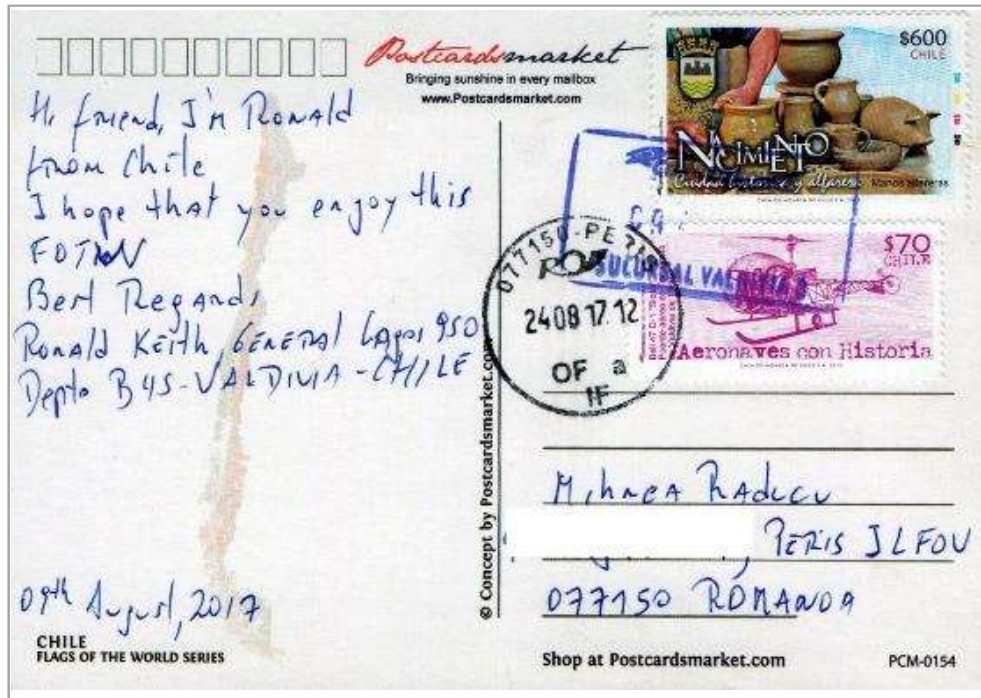 Postcardsmarket
Bringing sunshine in every mailbox
www.Postcardsmarket.com
Hi friend, I'm Ronald
from Chile
I hope that you enjoy this
FOTW
Best Regards
Ronald Keith, GENERAL Lagos 950
Depto B45-VALDIVIA-CHILE
09th August, 2017
CHILE
FLAGS OF THE WORLD SERIES
© Concept by Postcardsmarket.com
$600
CHILE
NACIMIENTO
Ciudad historica y alfarera
Manos alfareras
$70
CHILE
Aeronaves con Historia
SUCURSAL VALDIVIA
077150-PERIS
2408 17.12
OF a
IF
Mihnea Raducu
PERIS ILFOV
077150 ROMANOA
Shop at Postcardsmarket.com
PCM-0154